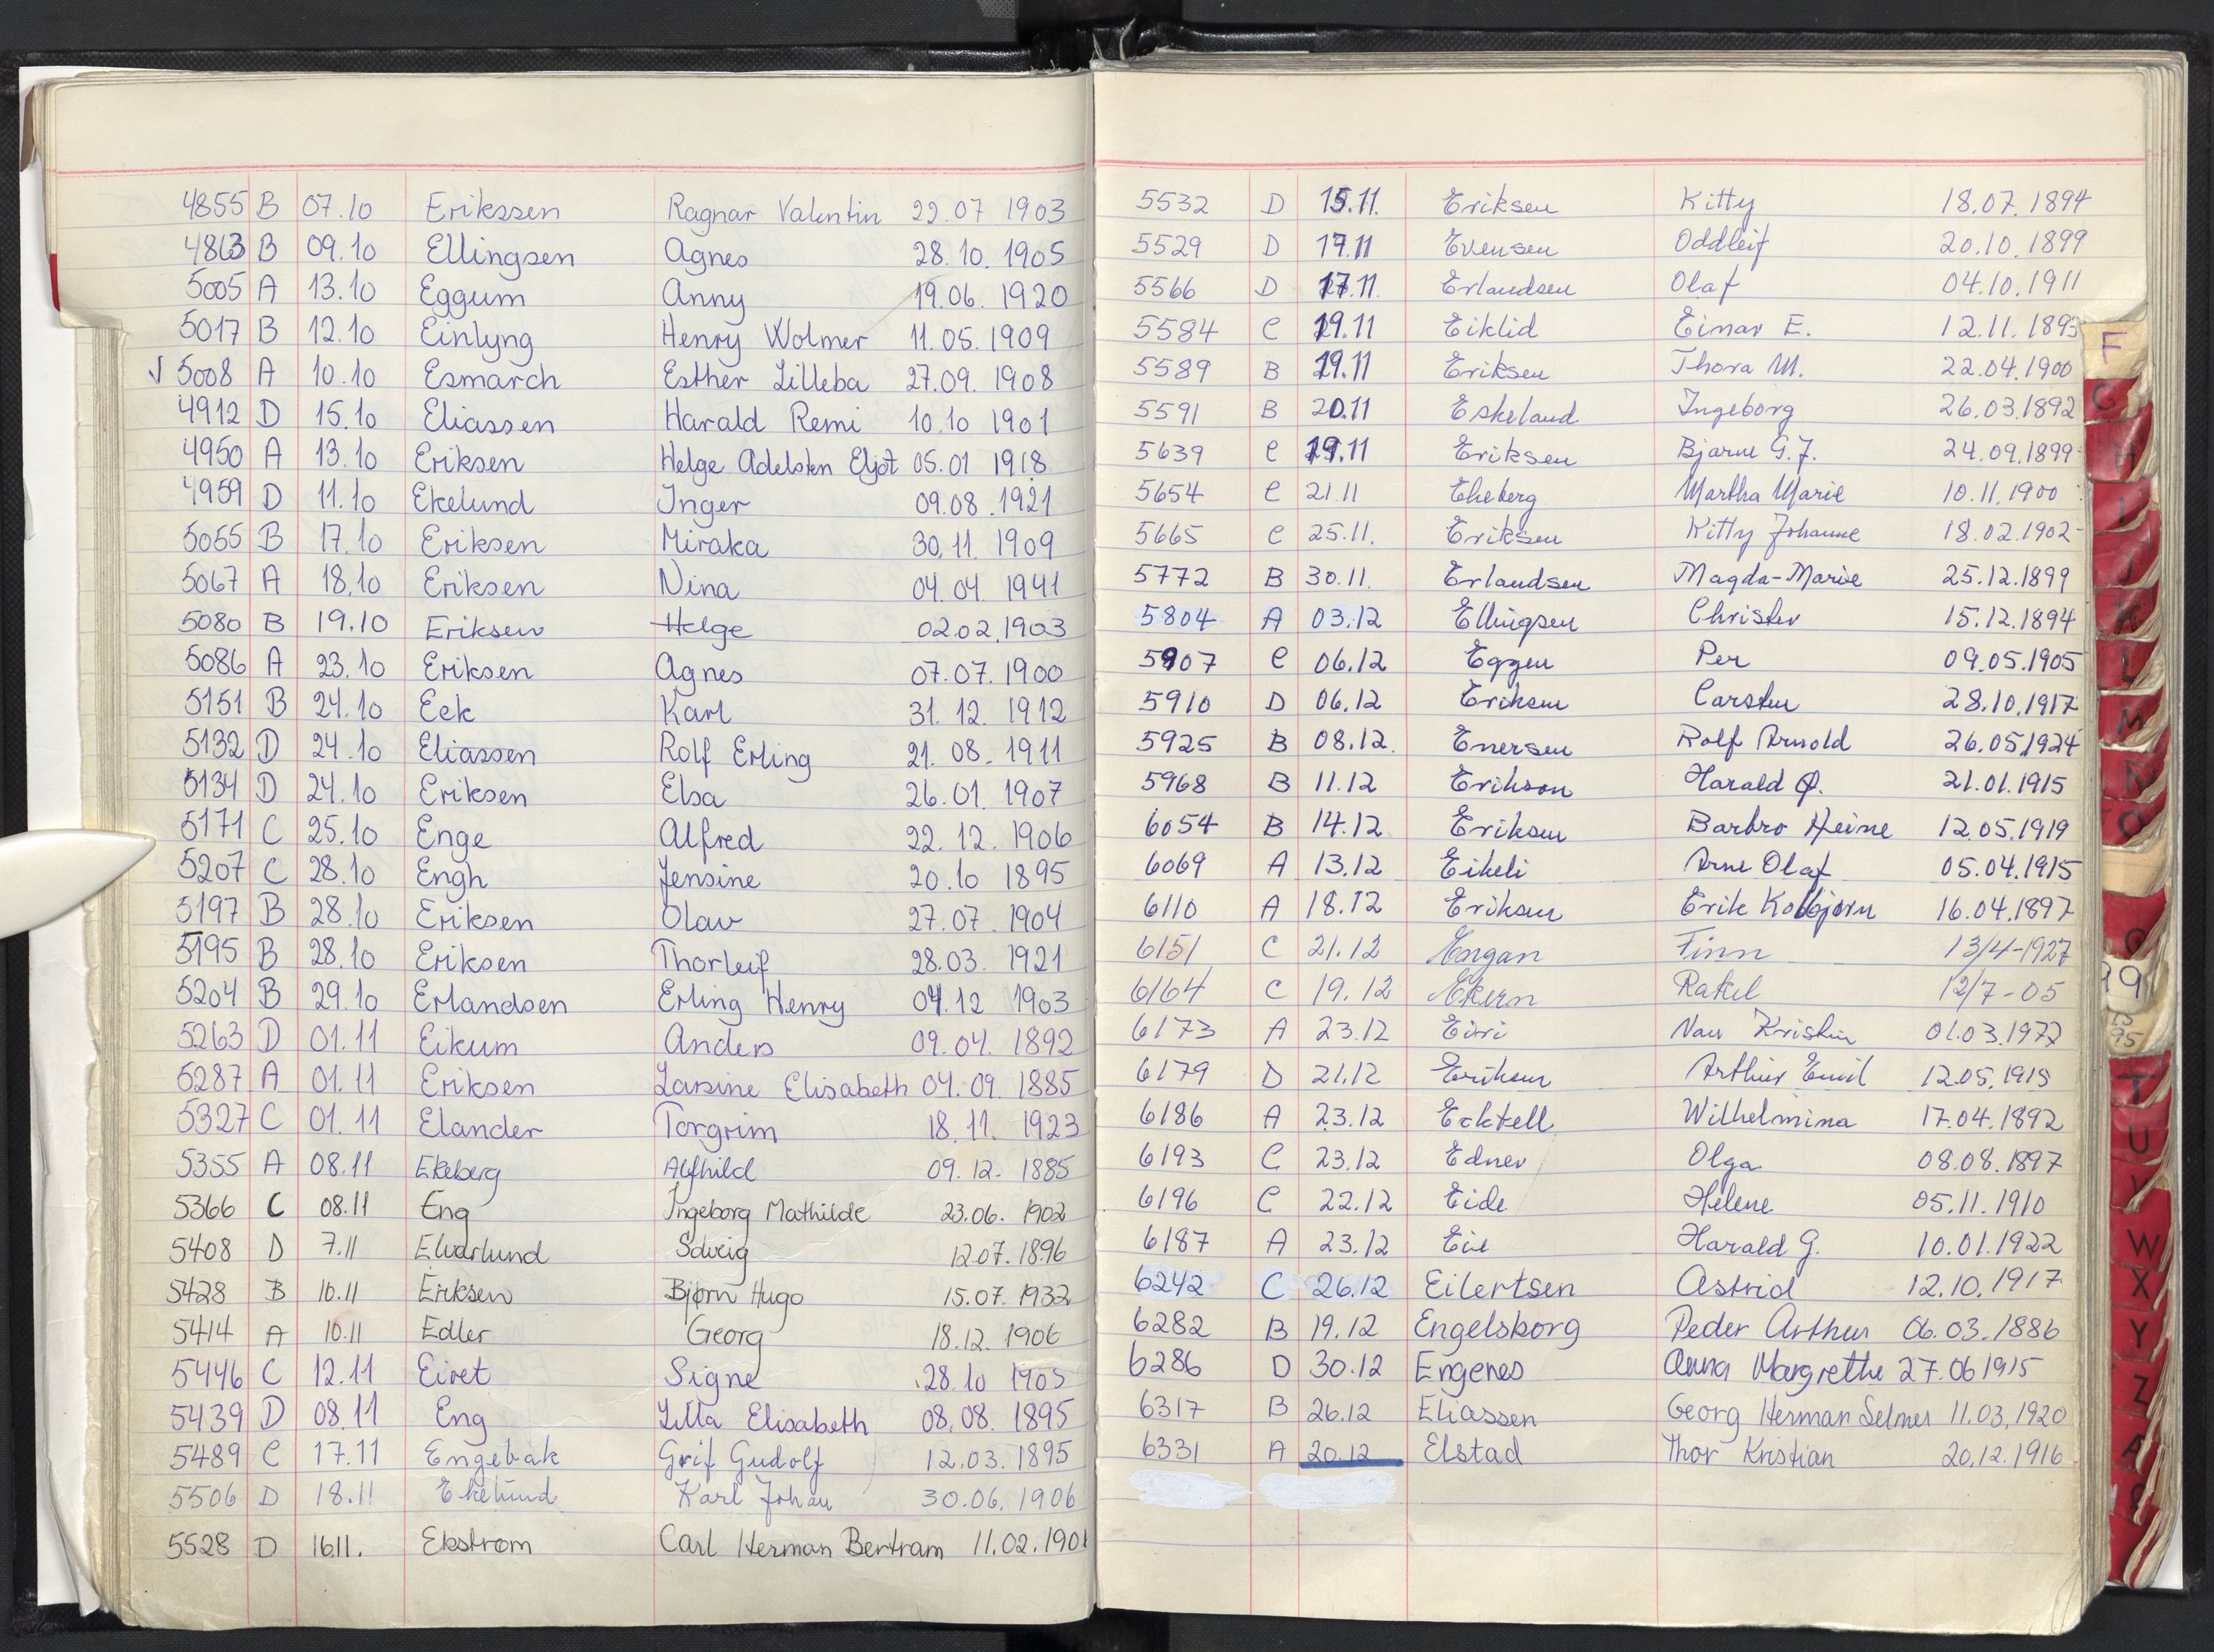 4855 B 07.10 Erikssen Ragnar Valentin 22.07 1903
4863 B 09.10 Ellingsen Agnes 28.10. 1905
5005 A 13.10 Eggum Anny 19.06. 1920
5017 B 12.10 Einlyng Henry Wolmer 11.05. 1909
√ 5008 A 10.10 Esmarch Esther Lilleba 27.09. 1908
4912 D 15.10 Eliassen Harald Remi 10.10 1901
4950 A 13.10 Eriksen Helge Adelsten Eljot 05.01 1918
4959 D 11.10 Ekelund Inger 09.08.1921
5055 B 17.10 Eriksen Miraka 30.11. 1909
5067 A 18.10 Eriksen Nina 04.04. 1941
5080 B 19.10 Eriksen Helge 02.02.1903
5086 A 23.10 Eriksen Agnes 07.07. 1900
5151 B 24.10 Eek Karl 31.12. 1912
5132 D 24.10 Eliassen Rolf Erling 21.08. 1911
5134 D 24.10 Eriksen Elsa 26.01. 1907
5171 C 25.10 Enge Alfred 22.12. 1906
5207 C 28.10 Engh Jensine 20.10 1895
5197 B 28.10 Eriksen Olav 27.07. 1904
5195 B 28.10 Eriksen Thorleif 28.03. 1921
5204 B 29.10 Erlandsen Erling Henry 04.12 1903
5263 D 01.11 Eikum Anders 09.04. 1892
5287 A 01.11 Eriksen Larsine Elisabeth 04.09. 1885
5327 C 01.11 Elander Torgrim 18.11. 1923
5355 A 08.11 Ekeberg Alfhild 09.12. 1885
5366 C 08.11 Eng Ingeborg Mathilde 23.06. 1902
5408 D 7.11 Elvarlund Solveig 12.07.1896
5428 B 10.11 Eriksen Bjørn Hugo 15.07. 1932
5414 A 10.11 Edler Georg 18.12. 1906
5446 C 12.11 Eivet Signe 28.10 1905
5439 D 08.11 Eng Lilla Elisabeth 08.08. 1895
5489 C 17.11 Engebak Grif Gudolf 12.03. 1895
5506 D 18.11 Ekelund Karl Johan 30.06. 1906
5528 D 16.11. Ekstrøm Carl Herman Bertram 11.02.1901
5532 D 15.11. Eriksen Kitty 18.07.1894
5529 D 17.11 Evensen Oddleif 20.10.1899
5566 D 17.11. Erlandsen Olaf 04.10.1911
5584 C 19.11 Eiklid Einar E. 12.11.1893
5589 B 19.11 Eriksen Thora M. 22.04.1900
5591 B 20.11 Eskeland Ingeborg 26.03.1892
5639 C 19.11 Eriksen Bjarne G.J. 24.09.1899
5654 C 21.11 Ekeberg Martha Marie 10.11.1900
5665 C 25.11. Eriksen Kitty Johanne 18.02.1902
5772 B 30.11. Erlandsen Magda-Marie 25.12.1899
5804 A 03.12 Ellingsen Christer 15.12.1894
5907 C 06.12 Eggen Per 09.05.1905
5910 D 06.12 Eriksen Carsten 28.10.1917
5925 B 08.12. Enersen Rolf Arnold 26.05.1924
5968 B 11.12 Erikson Harald Ø. 21.01.1915
6054 B 14.12 Eriksen Barbro Heine 12.05.1919
6069 A 13.12 Eikeli Arne Olaf 05.04.1915
6110 A 18.12 Eriksen Erik Kolbjørn 16.04.1897
6151 C 21.12 Engan Finn 13/4-1927
6164 C 19.12 Ekern Rakel 12/7-05
6173 A 23.12 Kristin 01.03.1972
6179 D 21.12 Eriksen Arthur Emil 12.05.1915
6186 A 23.12 Ecktell Wilhelmina 17.04.1892
6193 C 23.12 Edner Olga 08.08.1897
6196 C 22.12 Eide Helene 05.11.1910
6187 A 23.12 Eie Harald G. 10.01.1922
6242 C 26.12 Eilertsen Astrid 12.10.1917
6282 B 19.12 Engelsborg Peder Arthur 06.03.1886
6286 D 30.12 Engenes Anna Margrethe 27.06 1915
6317 B 26.12 Eliassen Georg Herman Selmer 11.03.1920
6331 A 20.12 Elstad Thor Kristian 20.12.1916
F
G
H
I
J
K
L
M
N
O
T
U
V
W
X
Y
Z